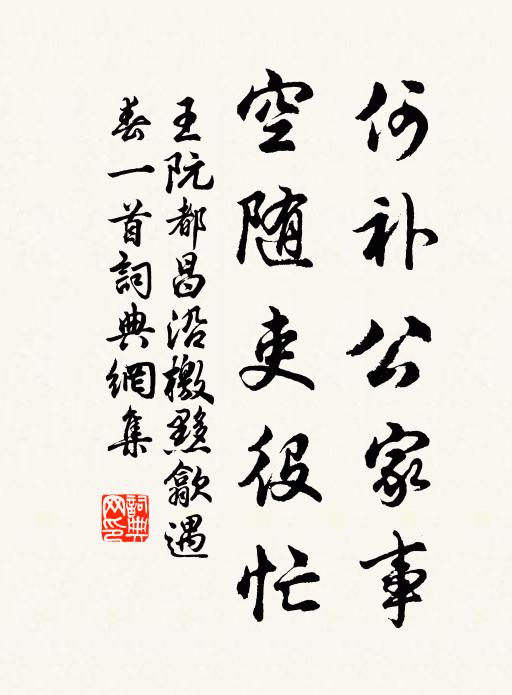 何补公家事
空随吏役忙
王阮都昌沿檄黟歙遇
春一首詞典網集
詞典
网印